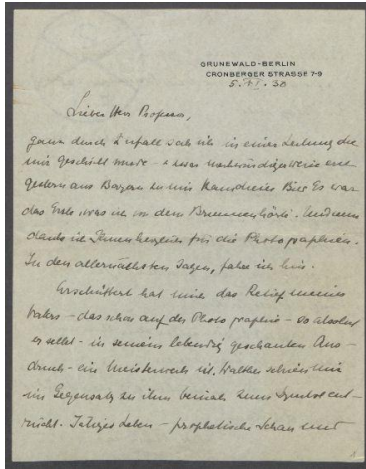 GRUNEWALD-BERLIN
CRONBERGER STRASSE 7-9
5. VI. 30
Lieber Herr Professor,
ganz durch Zufall sah ich in einer Zeitung die
mir geschickt wurde - merkwürdigerweise erst
gestern aus Bayern zu mir kam Ihres Es war
das Erste was ich von dem Brunnen hörte. Und nun
danke ich Ihnen herzlich für die Photographieen.
In den allernächsten Tagen, fahre ich hin.
Erschüttert hat mich das Relief meines
Vaters - das schon auf der Photographie - so absolut
er selbst - in seinem lebendig geschauten Aus-
druck - ein Meisterwerk ist. Walther schien mir
im Gegensatz zu ihm beinah zum Symbol ent-
rückt. Leben - prophetische Schau und